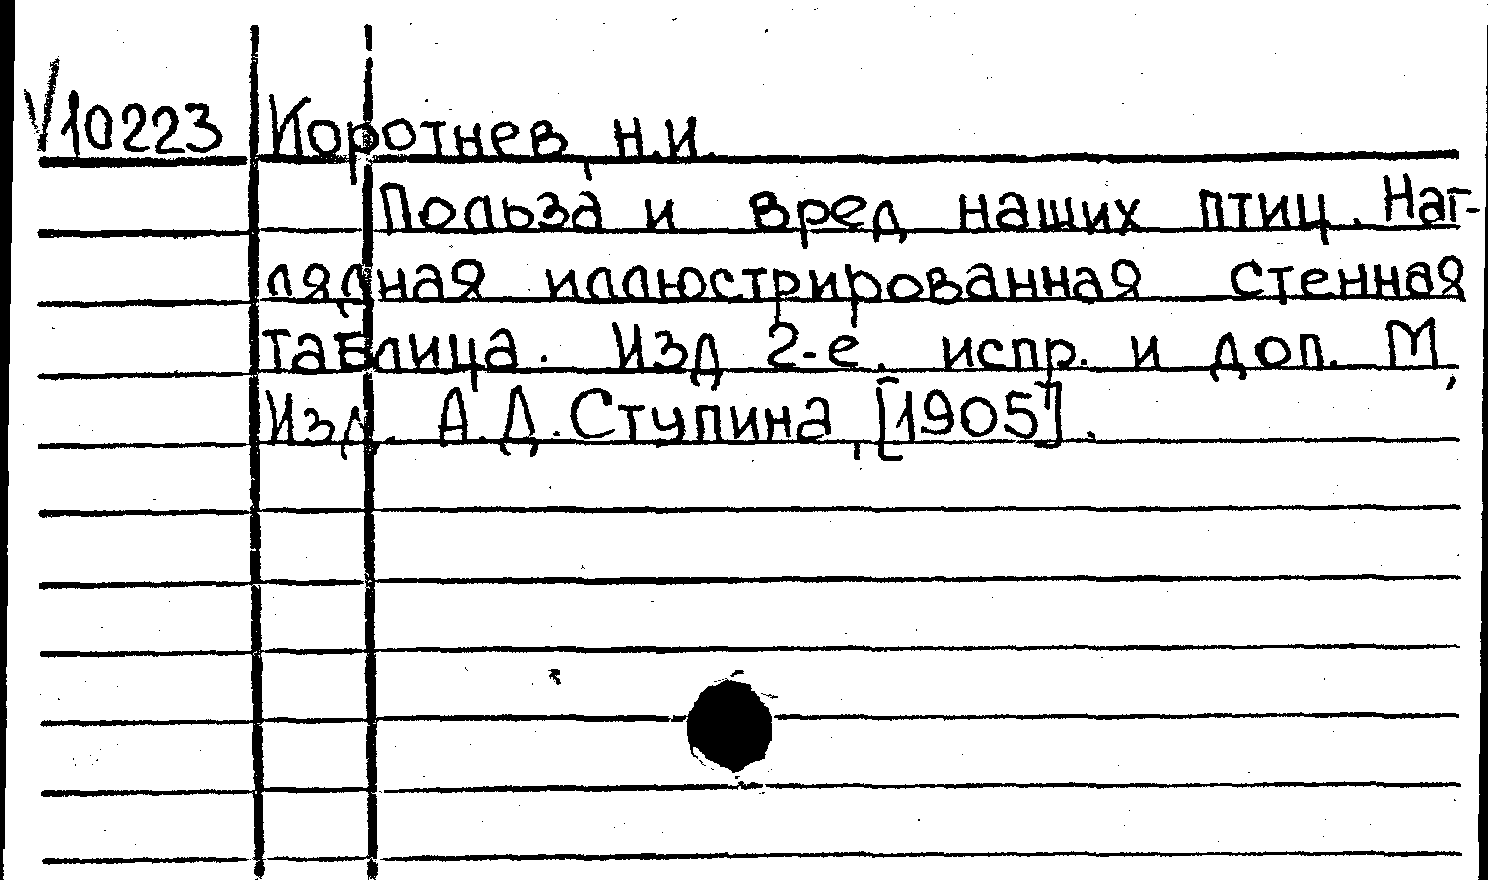 V10223 Коротнев Н.И.
Польза и вред наших птиц. Наг-
лядная иллюстрированная стенная
таблица. Изд 2-е, испр. и доп. М,
Изд. А.Д. Ступина, [1905].